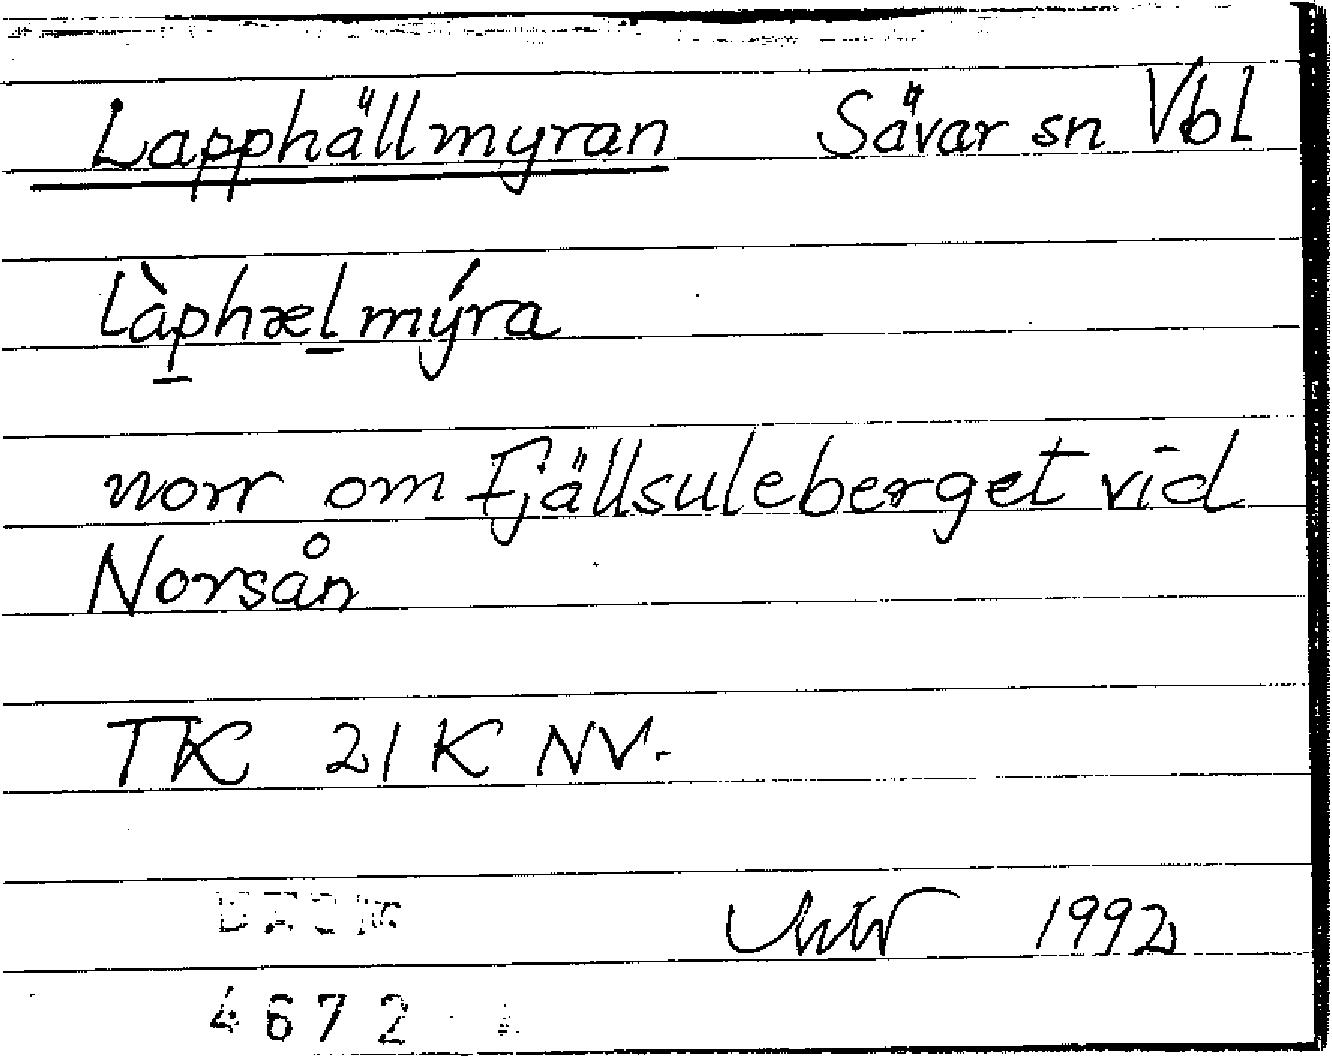 Lapphällmyran Sävar sn Vbl
làp̱hæḻmýra
norr om Fjällsuleberget vid
Norsån
TK 21 K NV.
1992
4672